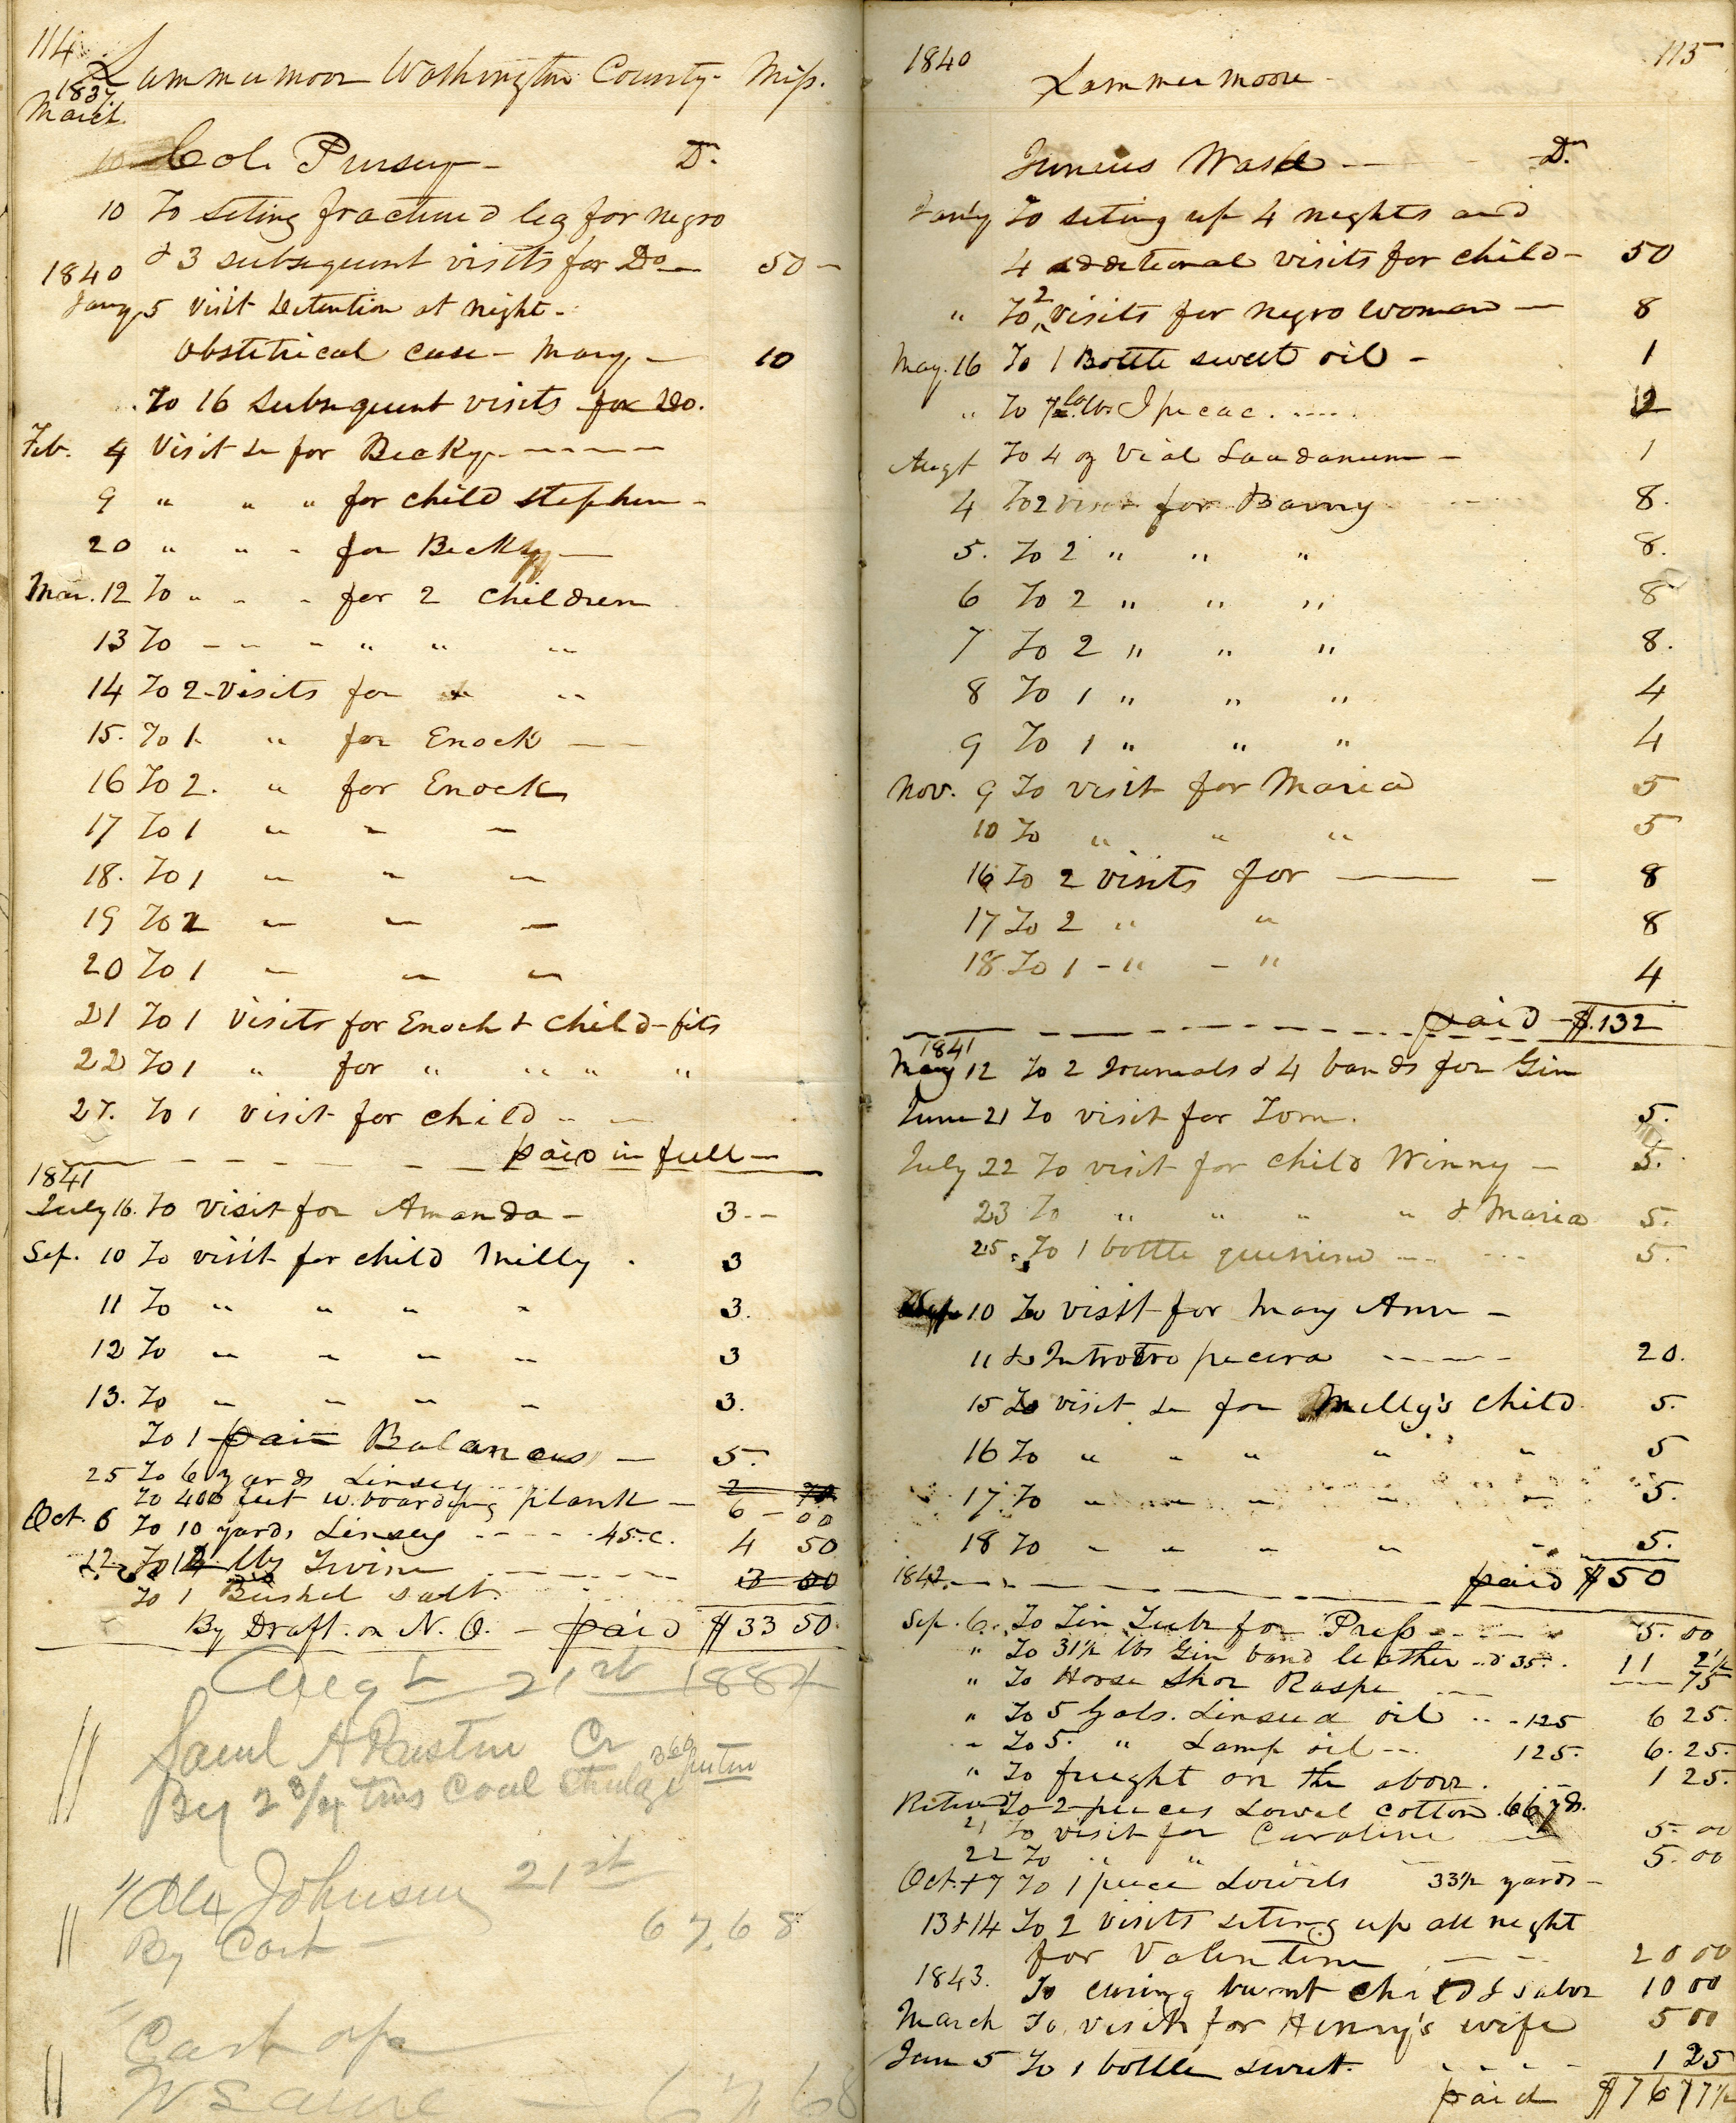 114
Lammermoor Washington County Miss.
1837
March
10 Col. Pursey Dr.
10 To seting fractured leg for negro
& 3 subsequent visits for Do 50
1840
Jany 5 Visit detention at night
Obstetrical case Mary 10
To 16 subsequent visits for Do.
Feb. 4 Visit &c for Becky
9 " " " for child Stephen
20 " " " for Becky
Mar. 12 To " " " for 2 children
13 To " " " " " "
14 To 2 visits for " "
15. To 1 " for Enock
16 To 2. " for Enock
17 To 1 " " "
18. To 1 " " "
19 To 2 " " "
20 To 1 " " "
21 To 1 visits for Enoch & child - fits
22 To 1 " for " " " "
27. To 1 visit for child
paid in full
1841
July 16. To visit for Amanda 3
Sep. 10 To visit for child Milly 3
11 To " " " " 3.
12 To " " " " 3
13. To " " " " 3.
To 1 pair Balances 5.
25 To 6 yards Linsey 2 70
To 400 feet w. boarding plank 6 00
Oct. 6 To 10 yards Linsey 45.c. 4 50
12 To 12 lbs Twine 3 00
To 1 Bushel salt.
By Draft on N. O. paid $33 50
Augt 21st 1884
Saml A Rustin Cr
By 2 3/4 tins Coal
Johnson 21st
By Cash 67.68
Cash
67 68
1840 115
Lammermoore
Junius Ward Dr.
Jany To seting up 4 nights and
4 additional visits for child 50
" To 2 visits for negro woman 8
May. 16 To 1 Bottle sweet oil 1
" To lbs Ipecac. 12
Augt To 4 oz Vial Laudanum 1
4 To 2 visits for Barny 8.
5. To 2 " " " 8.
6 To 2 " " " 8
7 To 2 " " " 8.
8 To 1 " " " 4
9 To 1 " " " 4
Nov. 9 To visit for Maria 5
10 To " " " 5
16 To 2 visits for 8
17 To 2 " " 8
18 To 1 " " 4
paid $.132
1841
May 12 To 2 Journals & 4 bands for Gin
June 21 To visit for Tom. 5.
July 22 To visit for child Winny 5.
23 To " " " " & Maria 5.
25. To 1 bottle quinine 5.
10 To visit for Mary Ann
11 20.
15 To visit &c for Milly's child 5.
16 To " " " " " 5
17 To " " " " " 5.
18 To " " " " " 5.
1842. paid $50
Sep. 6. To Tin Tube for Press 5.00
" To 31½ lbs Gin band leather 35. 11 2½
" To Horse Shoe Raspe 75
" To 5 Gals. Linseed oil 125 6 25.
" To 5. " Lamp oil 125. 6.25.
" To freight on the above. 1 25.
Returned To 2 pieces Lowel cotton 66 yds.
21 To visit for Caroline 5.00
22 To " " 5.00
Oct. 17 To 1 piece Lowels 33½ yards
13 & 14 To 2 visits seting up all night
for Valentine 20 00
1843. To curing burnt child & salve 10 00
March To visits for Henny's wife 5 00
Jan 5 To 1 bottle sweet. 1 25
paid $76 77½